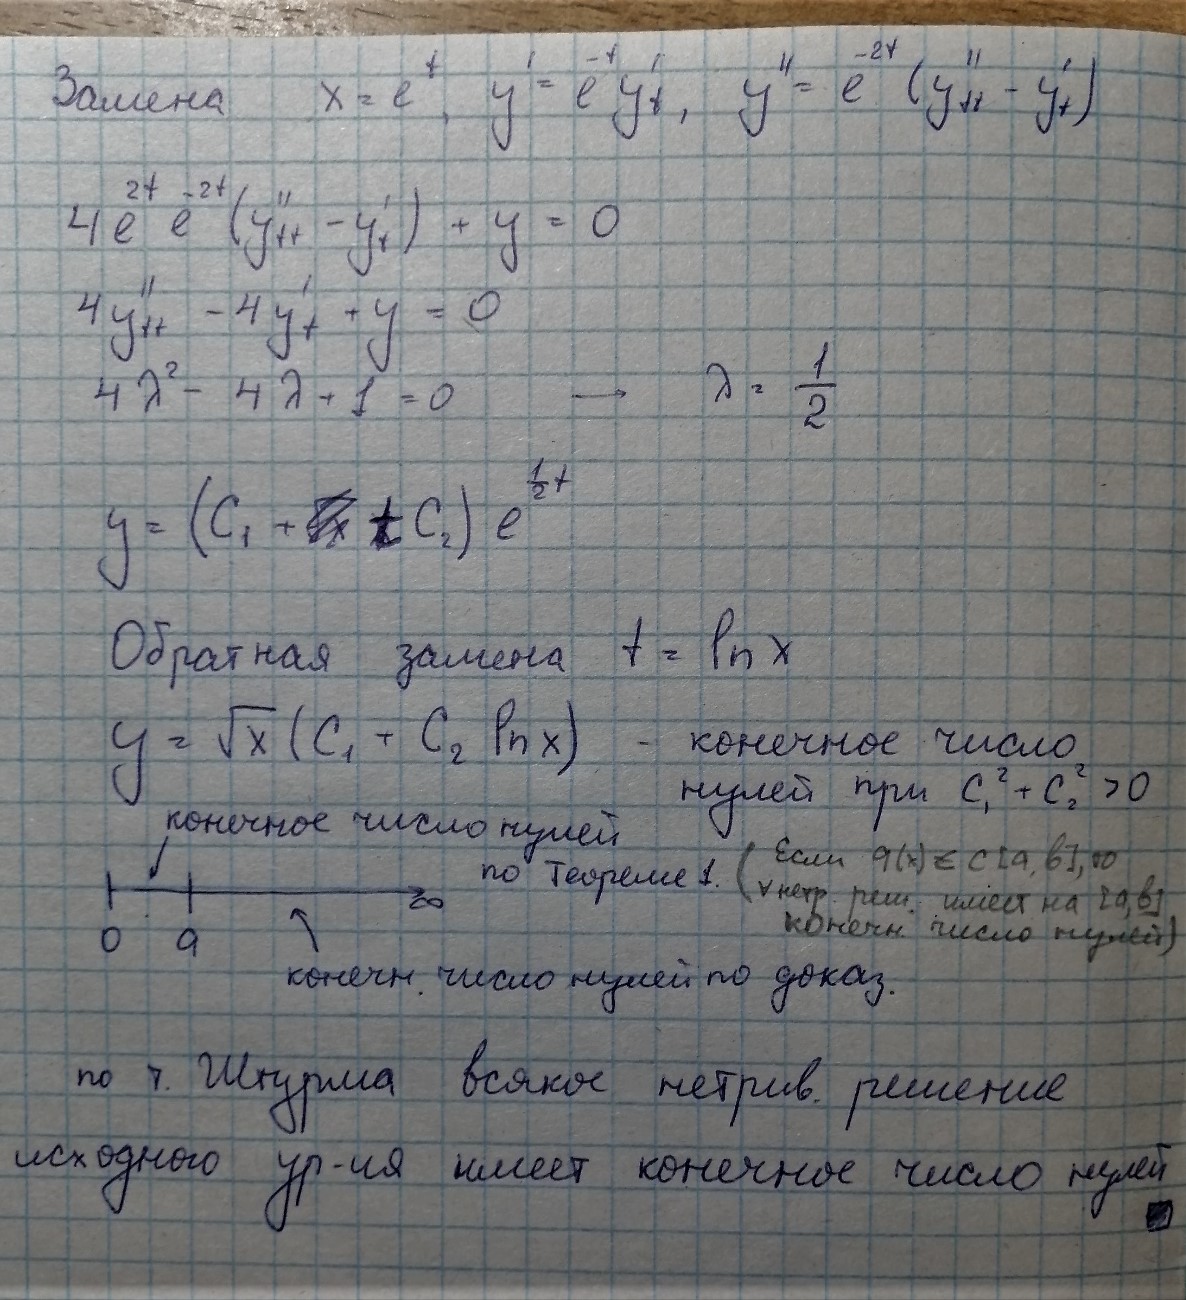 Замена x = e^t, y' = e^{-t} y'_t, y'' = e^{-2t} (y''_{tt} - y'_t)
4 e^{2t} e^{-2t} (y''_{tt} - y'_t) + y = 0
4y''_{tt} - 4y'_t + y = 0
4λ² - 4λ + 1 = 0 → λ = 1/2
y = (C₁ + t C₂) e^{½t}
Обратная замена t = ln x
y = √x (C₁ + C₂ ln x) - конечное число
нулей при C₁² + C₂² > 0
конечное число нулей
по Теореме 1. (Если q(x) ∈ C[a,b], то
∀ нетр. реш. имеет на [a,b]
конечн. число нулей)
0 a ∞
конечн. число нулей по доказ.
по т. Штурма всякое нетрив. решение
исходного ур-ия имеет конечное число нулей